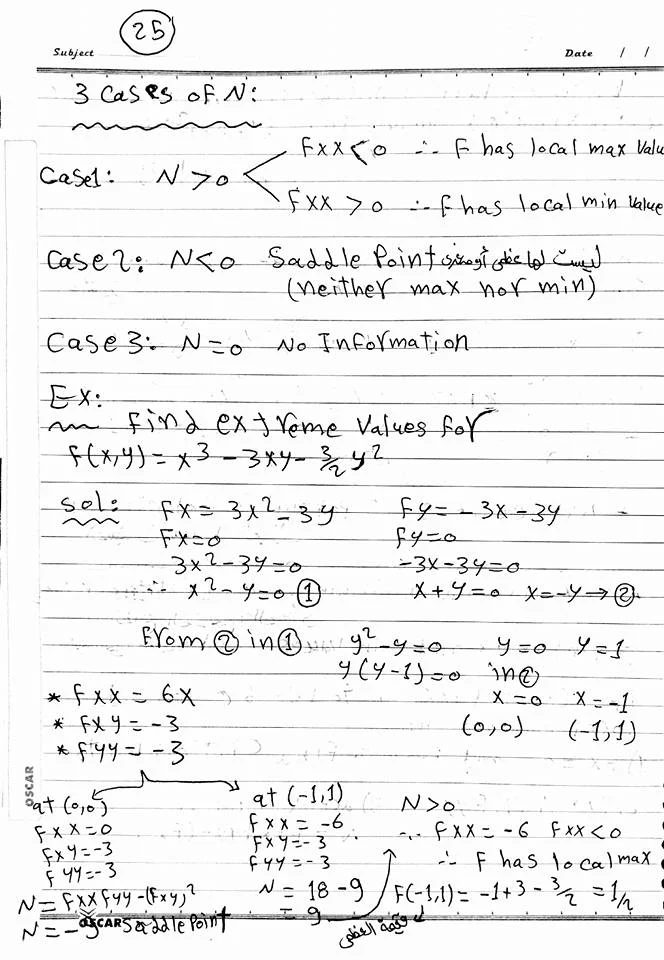 25
Subject
Date / /
3 Cases of N:
Case1: N > 0
Fxx < 0 ∴ F has local max Valu
Fxx > 0 ∴ F has local min Value
Case 2: N < 0 Saddle Point ليست لها عظمى أو صغرى
(neither max nor min)
Case 3: N = 0 No Information
Ex:
Find extreme Values for
F(x,y) = x³ - 3xy - 3/2 y²
Sol: Fx = 3x² - 3y Fy = -3x - 3y
Fx = 0 Fy = 0
3x² - 3y = 0 -3x - 3y = 0
∴ x² - y = 0 ① x + y = 0 x = -y → ②
From ② in ① y² - y = 0 y = 0 y = 1
y(y-1) = 0 in ②
* Fxx = 6x x = 0 x = -1
* Fxy = -3 (0,0) (-1,1)
* Fyy = -3
at (0,0)
Fxx = 0
Fxy = -3
Fyy = -3
N = Fxx Fyy - (Fxy)²
N = -9 Saddle Point
at (-1,1)
Fxx = -6
Fxy = -3
Fyy = -3
N = 18 - 9
= 9
N > 0
∵ Fxx = -6 Fxx < 0
∴ F has local max
F(-1,1) = -1 + 3 - 3/2 = 1/2
قيمة العظمى
OSCAR
OSCAR